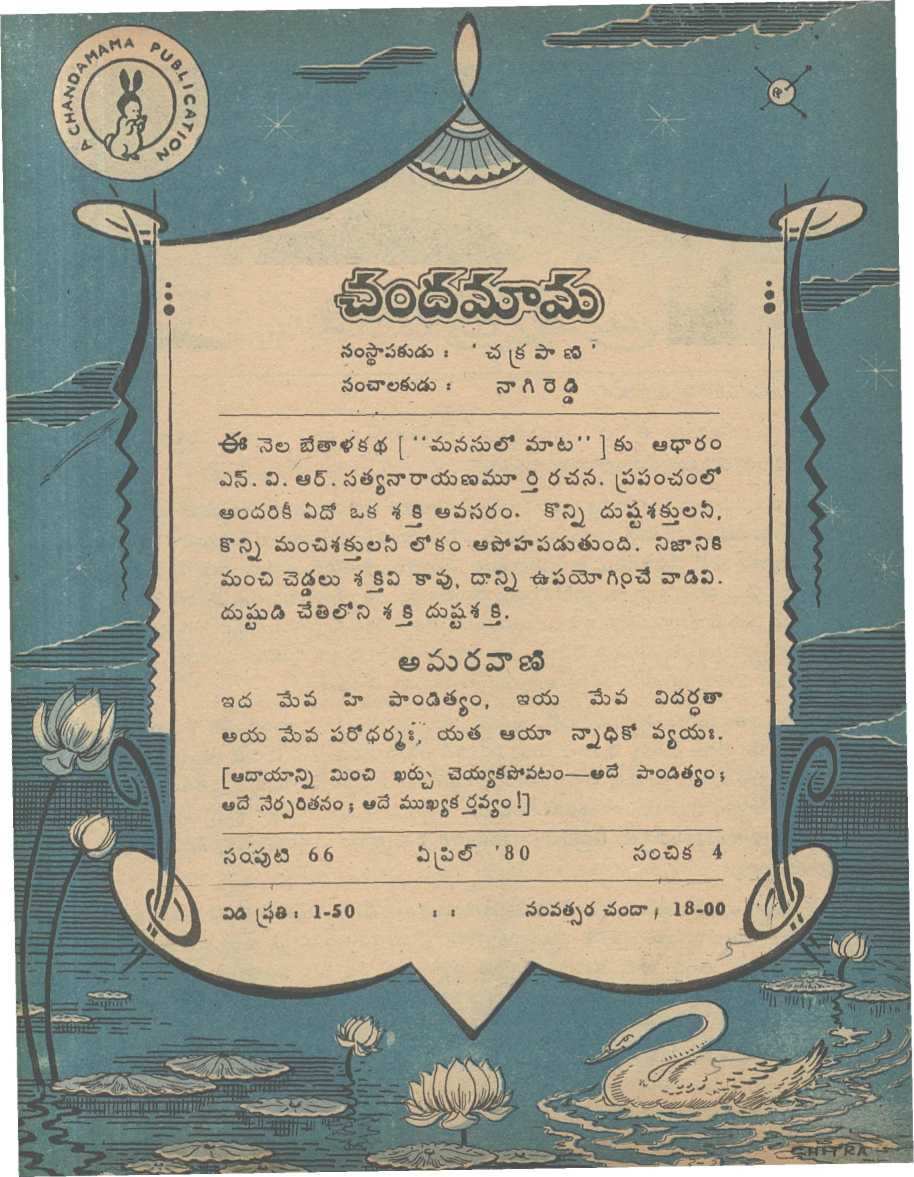 A CHANDAMAMA PUBLICATION
చందమామ
సంస్థాపకుడు : ' చ క్ర పా ణి '
సంచాలకుడు : నా గి రె డ్డి
ఈ నెల బేతాళకథ [ ''మనసులో మాట'' ] కు ఆధారం
ఎన్. వి. ఆర్. సత్యనారాయణమూర్తి రచన. ప్రపంచంలో
అందరికీ ఏదో ఒక శక్తి అవసరం. కొన్ని దుష్టశక్తులనీ,
కొన్ని మంచిశక్తులనీ లోకం అపోహపడుతుంది. నిజానికి
మంచి చెడ్డలు శక్తివి కావు, దాన్ని ఉపయోగించే వాడివి.
దుష్టుడి చేతిలోని శక్తి దుష్టశక్తి.
అమరవాణి
ఇద మేవ హి పాండిత్యం, ఇయ మేవ విదర్ధతా
అయ మేవ పరోధర్మః, యత ఆయా న్నాధికో వ్యయః.
[ఆదాయాన్ని మించి ఖర్చు చెయ్యకపోవటం—అదే పాండిత్యం;
అదే నేర్పరితనం; అదే ముఖ్యకర్తవ్యం!]
సంపుటి 66 ఏప్రిల్ '80 సంచిక 4
విడి ప్రతి: 1-50 : : సంవత్సర చందా : 18-00
CHITRA